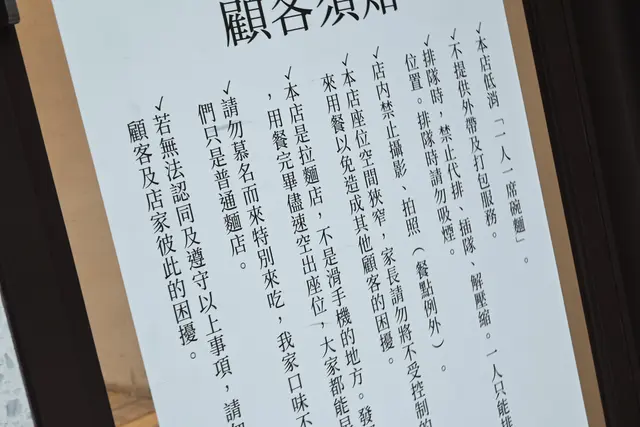 顧客須知
✓本店低消「一人一席碗麵」。
✓不提供外帶及打包服務。
✓排隊時,禁止代排、插隊、解壓縮。一人只能排
位置。排隊時請勿吸煙。
✓店內禁止攝影、拍照(餐點例外)。
✓本店座位空間狹窄,家長請勿將不受控制的
來用餐以免造成其他顧客的困擾。
✓本店是拉麵店,不是滑手機的地方。發
,用餐完畢儘速空出座位,大家都能
✓請勿慕名而來特別來吃,我家口味不
們只是普通麵店。
✓若無法認同及遵守以上事項,請勿
顧客及店家彼此的困擾。